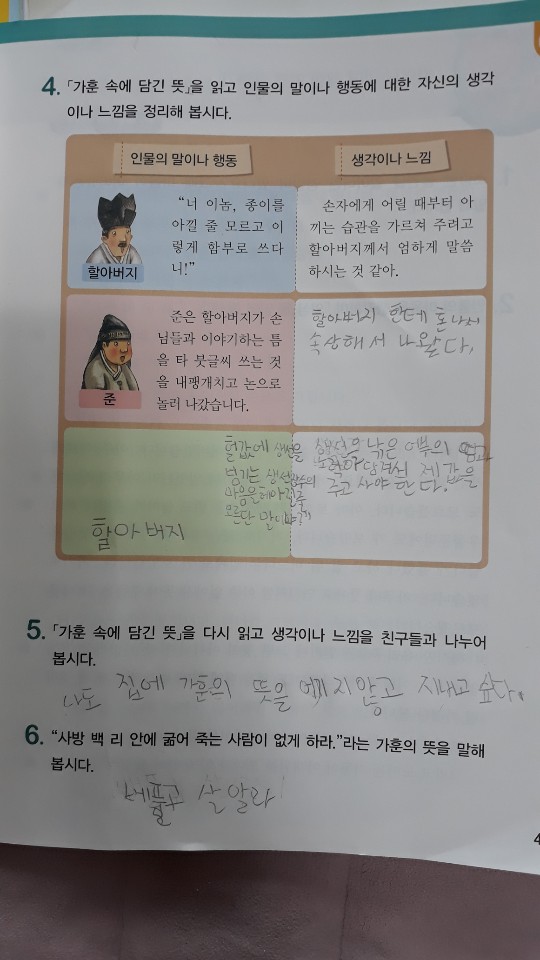 4. 「가훈 속에 담긴 뜻」을 읽고 인물의 말이나 행동에 대한 자신의 생각
이나 느낌을 정리해 봅시다.
인물의 말이나 행동
생각이나 느낌
“너 이놈, 종이를
아낄 줄 모르고 이
렇게 함부로 쓰다
니!”
할아버지
손자에게 어릴 때부터 아
끼는 습관을 가르쳐 주려고
할아버지께서 엄하게 말씀
하시는 것 같아.
준은 할아버지가 손
님들과 이야기하는 틈
을 타 붓글씨 쓰는 것
을 내팽개치고 논으로
놀러 나갔습니다.
준
할아버지 한테 혼나서
속상해서 나왔다.
헐값에 생선을
넘기는 생선장수의
마음을 헤아릴줄
모른단 말이냐
할아버지
생선은 낚은 어부의
담겨서 제값을
주고 사야 한다.
5. 「가훈 속에 담긴 뜻」을 다시 읽고 생각이나 느낌을 친구들과 나누어
봅시다.
나도 집에 가훈의 뜻을 어기지않고 지내고 싶다.
6. “사방 백 리 안에 굶어 죽는 사람이 없게 하라.”라는 가훈의 뜻을 말해
봅시다.
살 알라
4